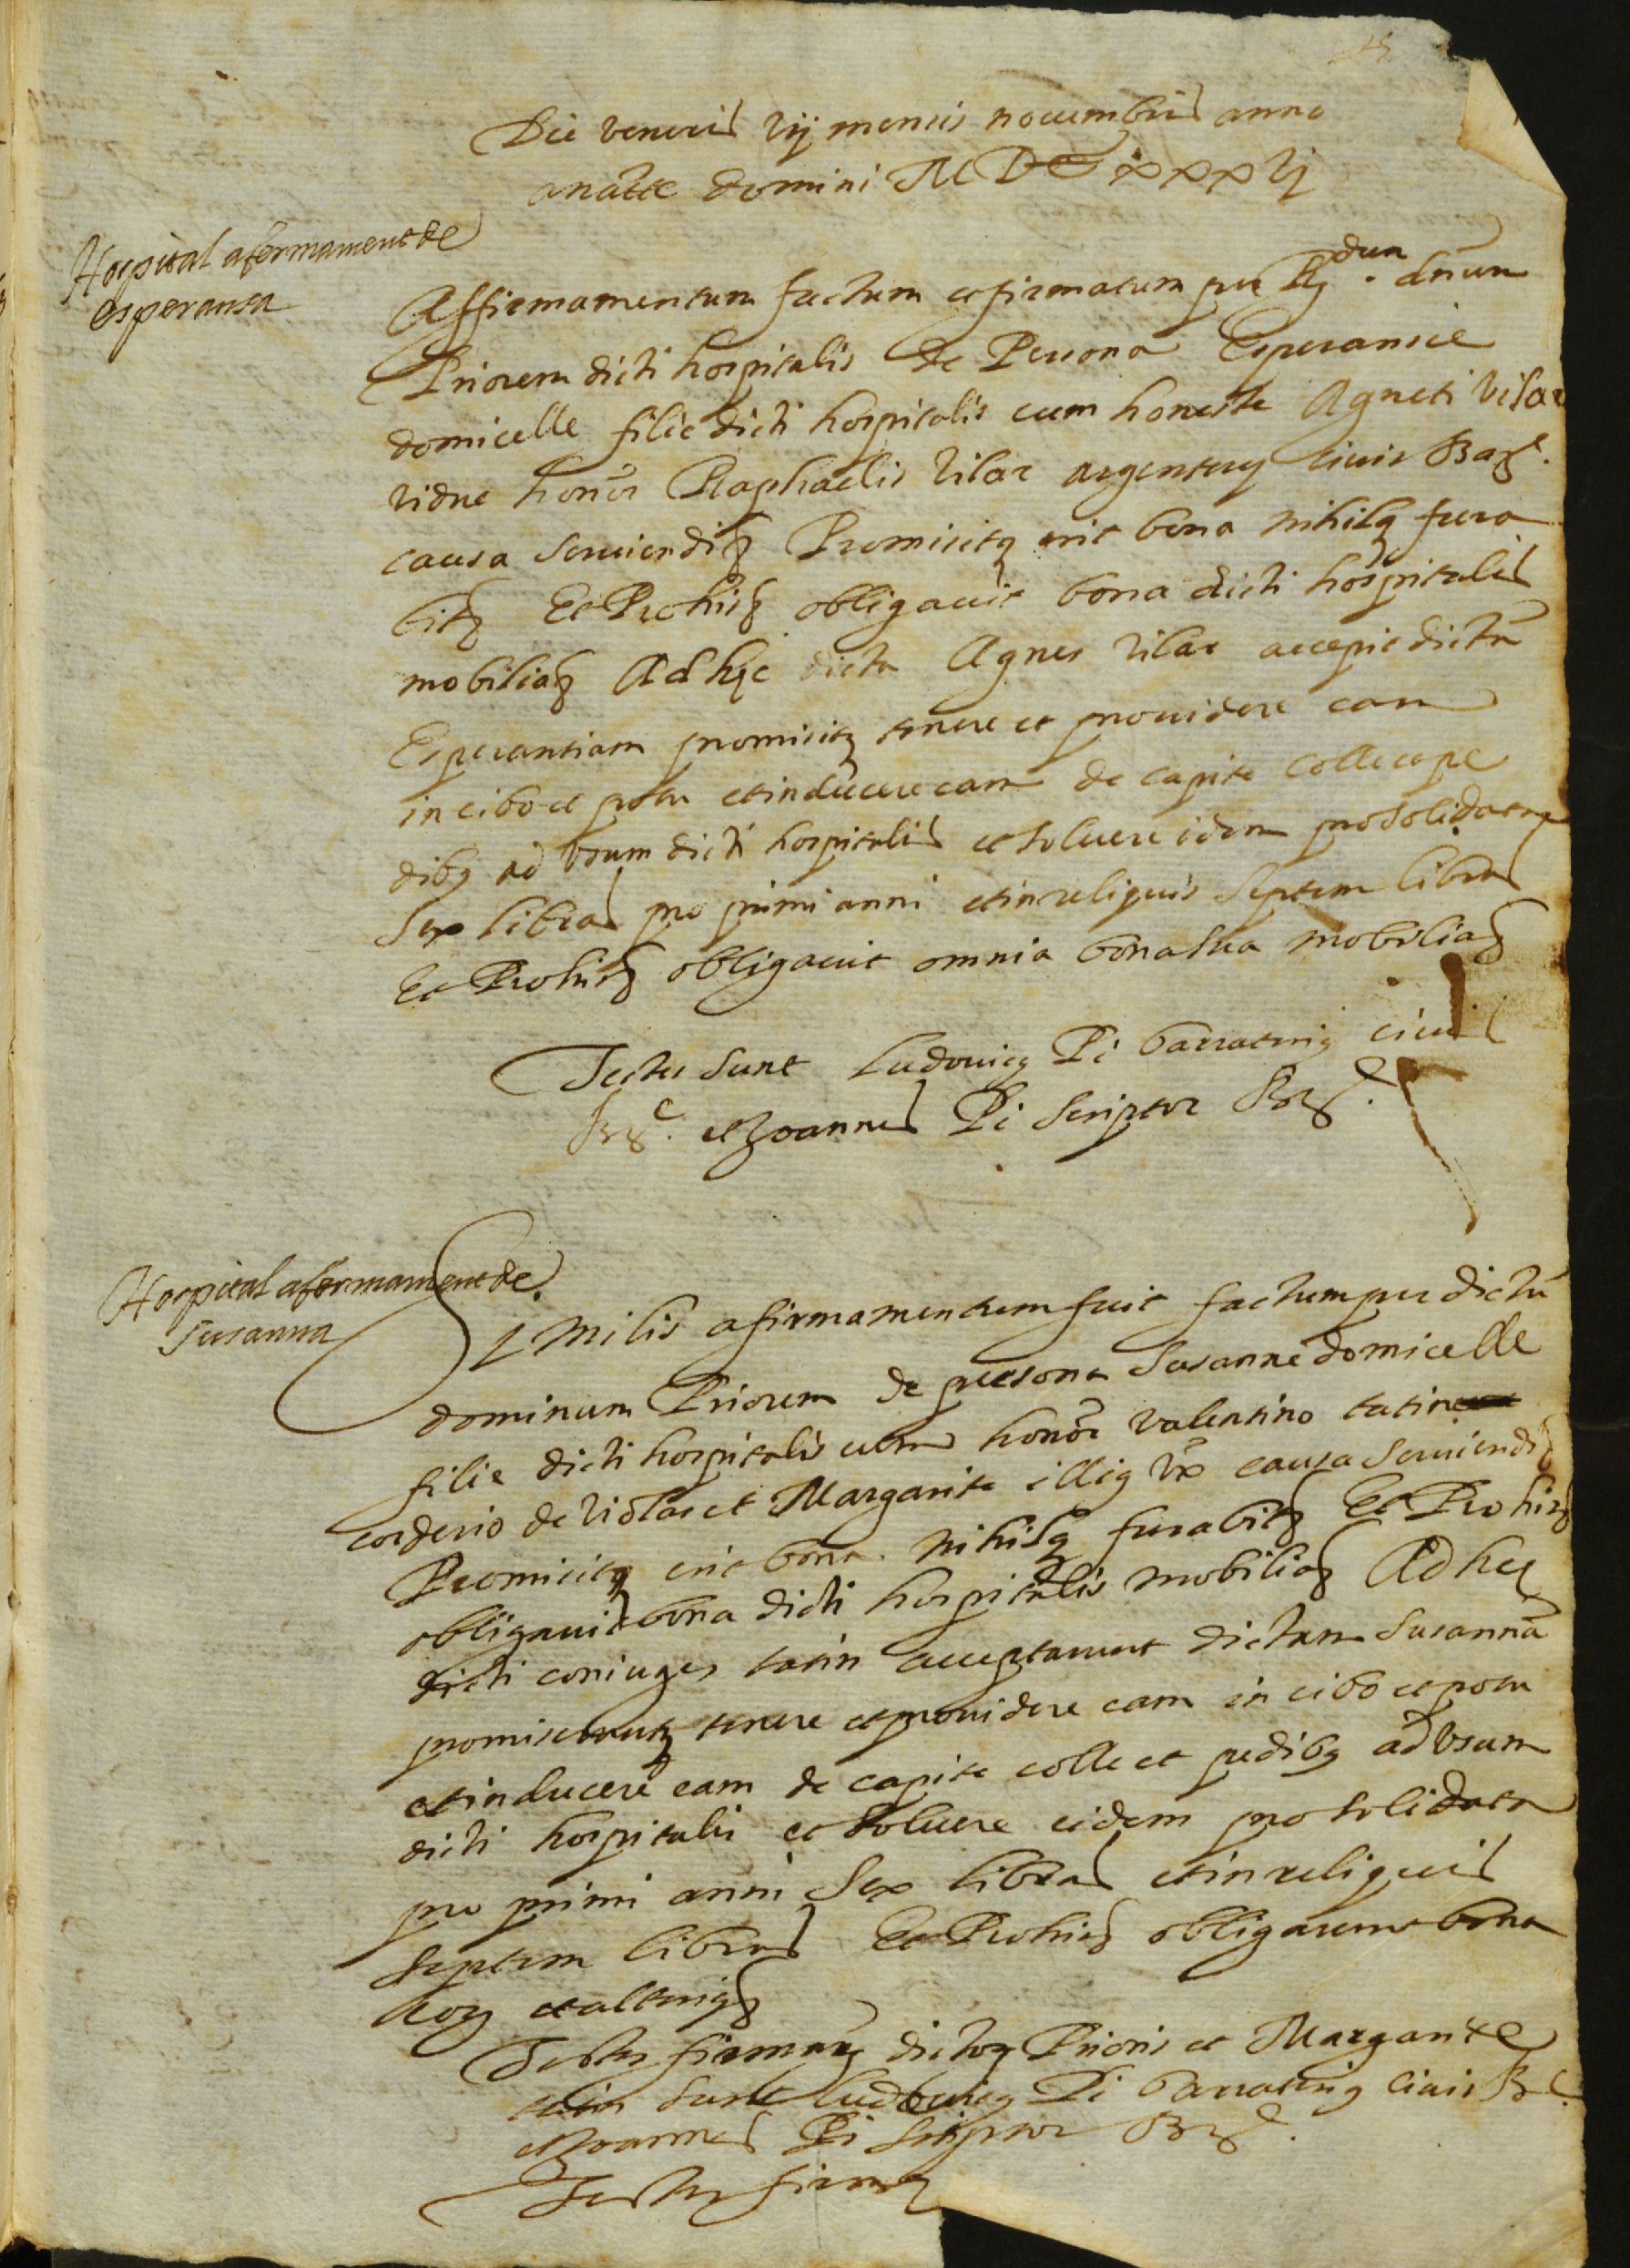 Die veneris vij mensis nouembris anno
a natte domini M DC xxxvj
Hospital afermament de
esperansa
Affirmamentum factum et firmatum per Rdum dnum
Priorem dicti hospitalis de Persona Esperansie
domicelle filie dicti hospitalis cum honeste Agneti Vilar
vidue honor Raphaelis Vilar argentery ciuis Barne.
causa seruiendi Promisitq erit bona nihilq fura
bitq Et Pro his obligauit bona dicti hospitalis
mobilia Ad hec dicta Agnes Vilar accepit dictã
Esperantiam promisitq tenere et prouidere eam
in cibo et potu et inducere eam de capite colle et pe
dibq ad vsum dicti hospitalis et soluere idem pro solidata
sex libras pro primi anni et in reliquis septem libras
Et Pro his obligauit omnia bona sua mobilia
Testes sunt Ludouicq Pi barratinq ciuis
Bne. et Joannes Pi scriptor Bne.
Hospital afermament de
susanna
Similis afirmamentum fuit factum per dictũ
dominum Priorem de persona Susanne domicelle
filie dicti hospitalis cum honor Valentino tatin
corderio de violas et Margarita illiq vx causa seruiendi
Promisitq erit bona nihilq furabitq Et Pro his
obligauit bona dicti hospitalis mobilia Ad hec
dicti coniuges tatin acceptarunt dictam Susannã
promiseruntq tenere et prouidere eam in cibo et potu
et inducere eam de capite colle et pedibq ad vsum
dicti hospitalis et soluere eidem pro solidata
pro primi anni sex libras et in reliquis
septem libras Et Pro his obligarunt bona
eoq et alteriq
Testes firmarq dictoq Prioris et Margarite
tatin sunt Ludouicq Pi barratinq ciuis B
et Joannes Pi scriptor Bne.
Testes firmq